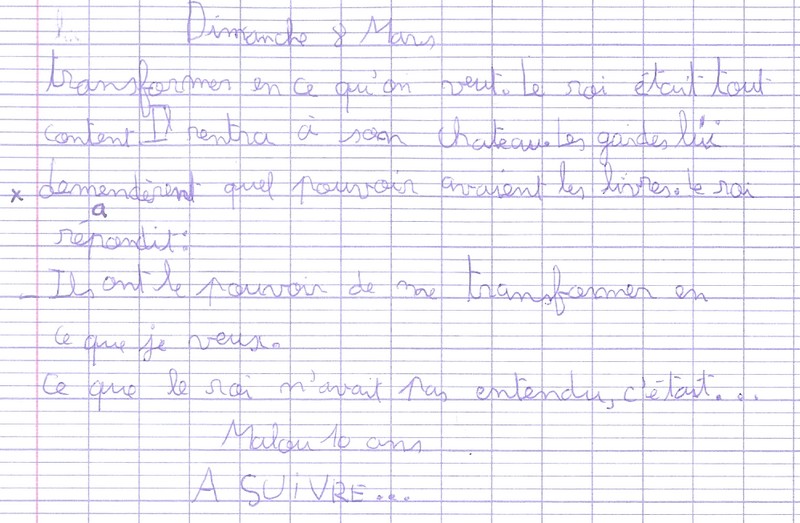 Dimanche 8 Mars
transformer en ce qu'on veut. Le roi était tout
content Il rentra à son chateau. Les gardes lui
x demendèrent quel pouvoir avaient les livres. Le roi
a
répondit:
_ Ils ont le pouvoir de me transformer en
ce que je veux.
Ce que le roi n'avait pas entendu, c'était...
Malou 10 ans
A SUiVRE...